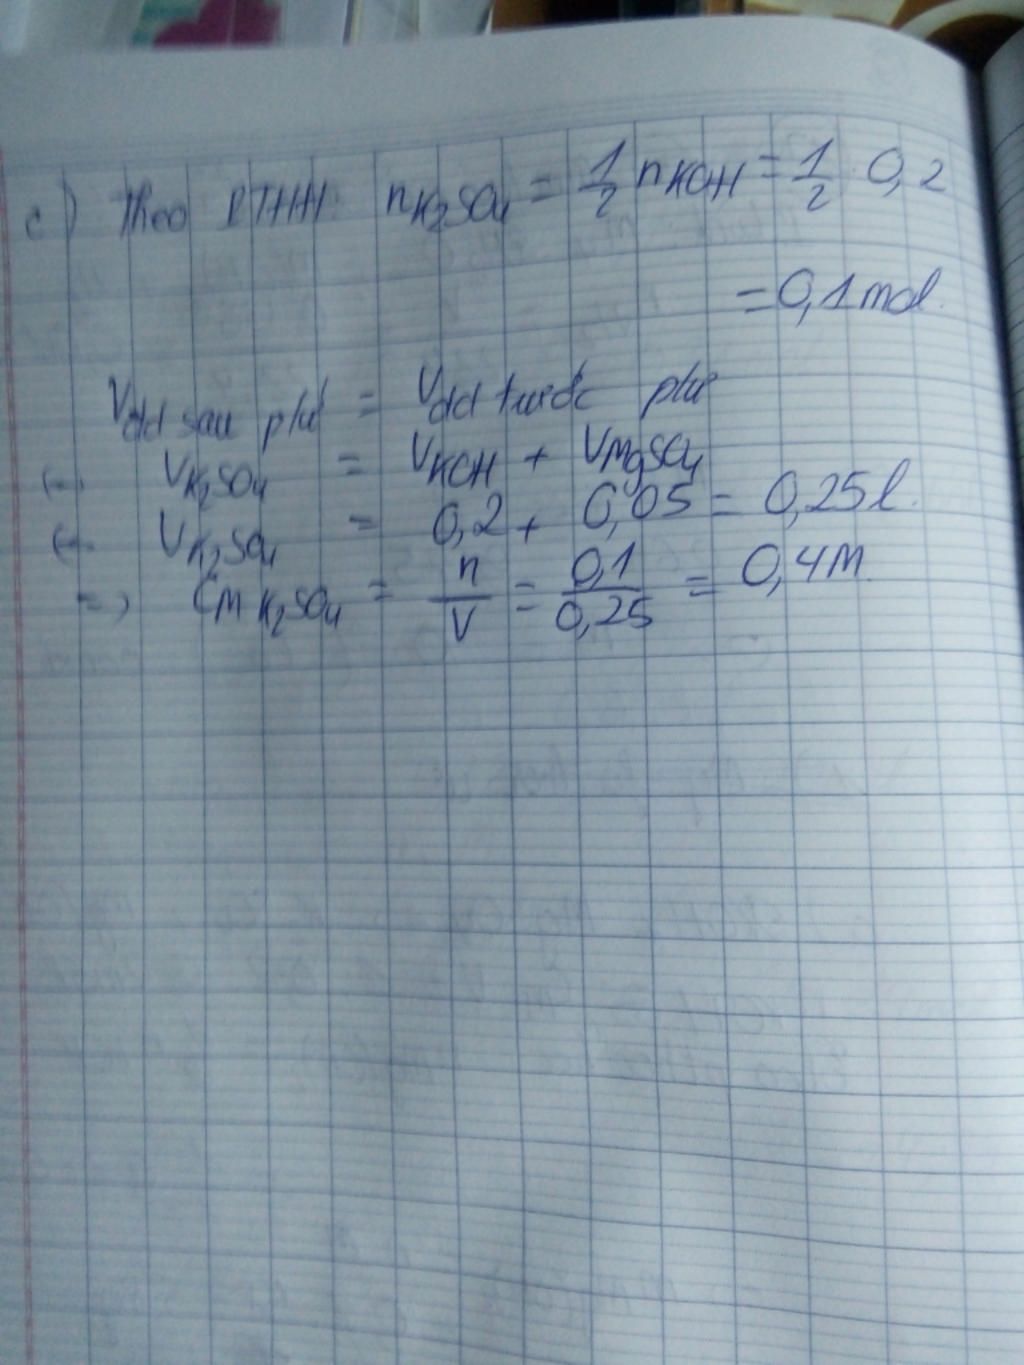 c) Theo PTHH: nK2SO4 = 1/2 nKOH = 1/2 . 0,2
= 0,1 mol.
Vdd sau pứ = Vdd trước pứ
(-) VK2SO4 = VKOH + VMgSO4
(-) VK2SO4 = 0,2 + 0,05 = 0,25l.
=> CM K2SO4 = n/V = 0,1/0,25 = 0,4M.